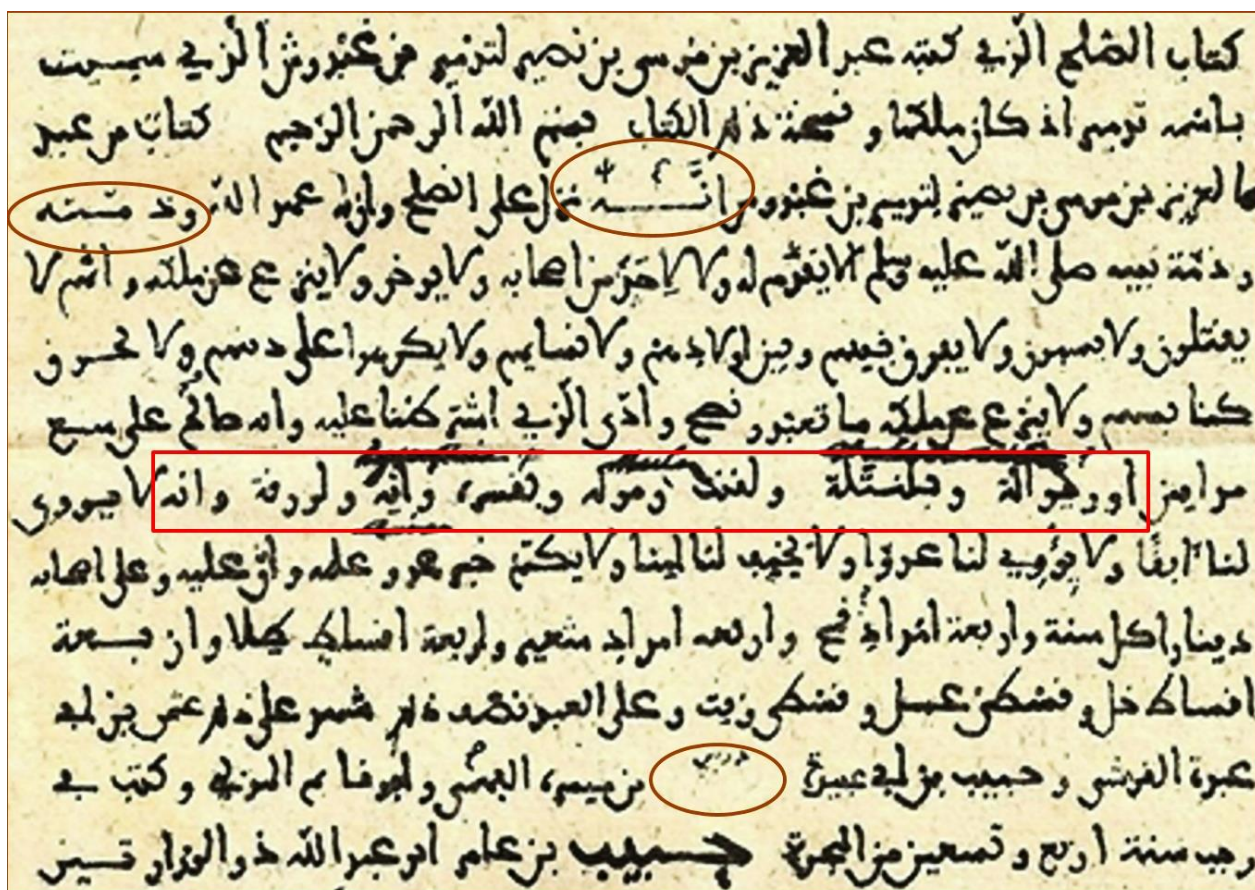 كتاب الصلح الذي كتبه عبد العزيز بن موسى بن نصير لتدمير بن غبدوش الذي سميت
باسمه تدمير اذ كان ملكها ونسخة ذلك الكتاب بسم الله الرحمن الرحيم كتاب من عبد
العزيز بن موسى بن نصير لتدمير بن غبدوش انه نزل على الصلح وان له عهد الله وذمته
وذمة نبيه صلى الله عليه وسلم الا يقدم له ولا لاحد من اصحابه ولا يوخر ولا ينزع عن ملكه وانهم لا
يقتلون ولا يسبون ولا يفرق بينهم وبين اولادهم ولا نسايهم ولا يكرهوا على دينهم ولا تحرق
كنايسهم ولا ينزع عن ملكه ما تعبد ونصح وادى الذي اشترطنا عليه وانه صالح على سبع
مداين اوريوالة وبلنتلة ولقنت ومولة وبقسره وايه ولورقة وانه لا يووى
لنا ابقا ولا يووي لنا عدوا ولا يخيف لنا امنا ولا يكتم خبر عدو علمه وان عليه وعلى اصحابه
دينارا كل سنة واربعة امداد قمح واربعة امداد شعير واربعة اقساط طلا واربعة
اقساط خل وقسطي عسل وقسطي زيت وعلى العبد نصف ذلك شهد على ذلك عثمن بن ابي
عبدة القرشي وحبيب بن ابي عبيدة بن ميسره الفهمي وابو قايم الهذلي وكتب في
رجب سنة اربع وتسعين من الهجرة حبيب بن عامر ابو عبد الله ذو الوزارتين